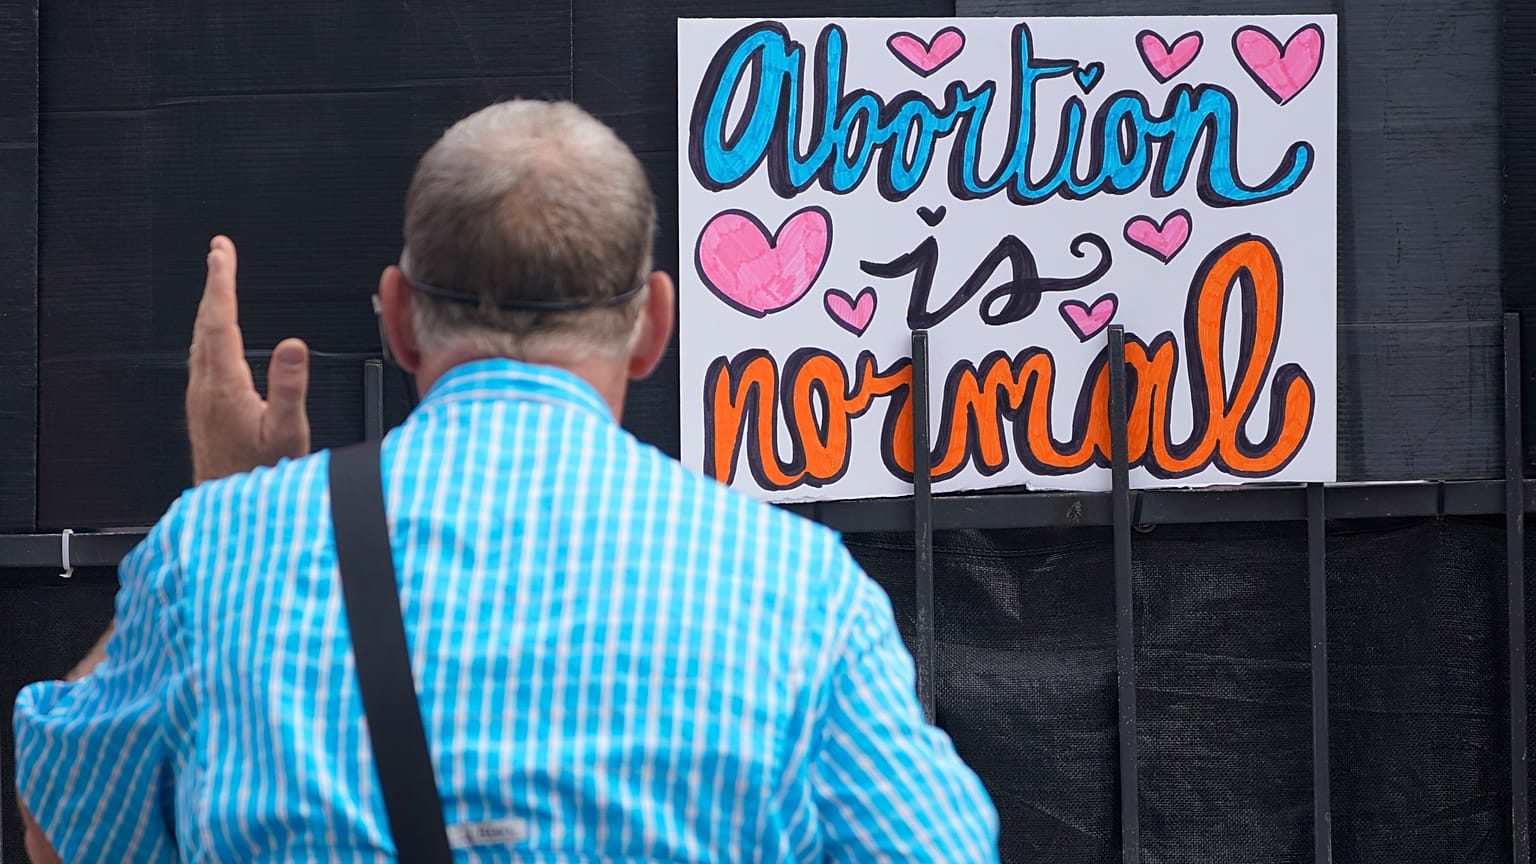 Abortion
is
normal